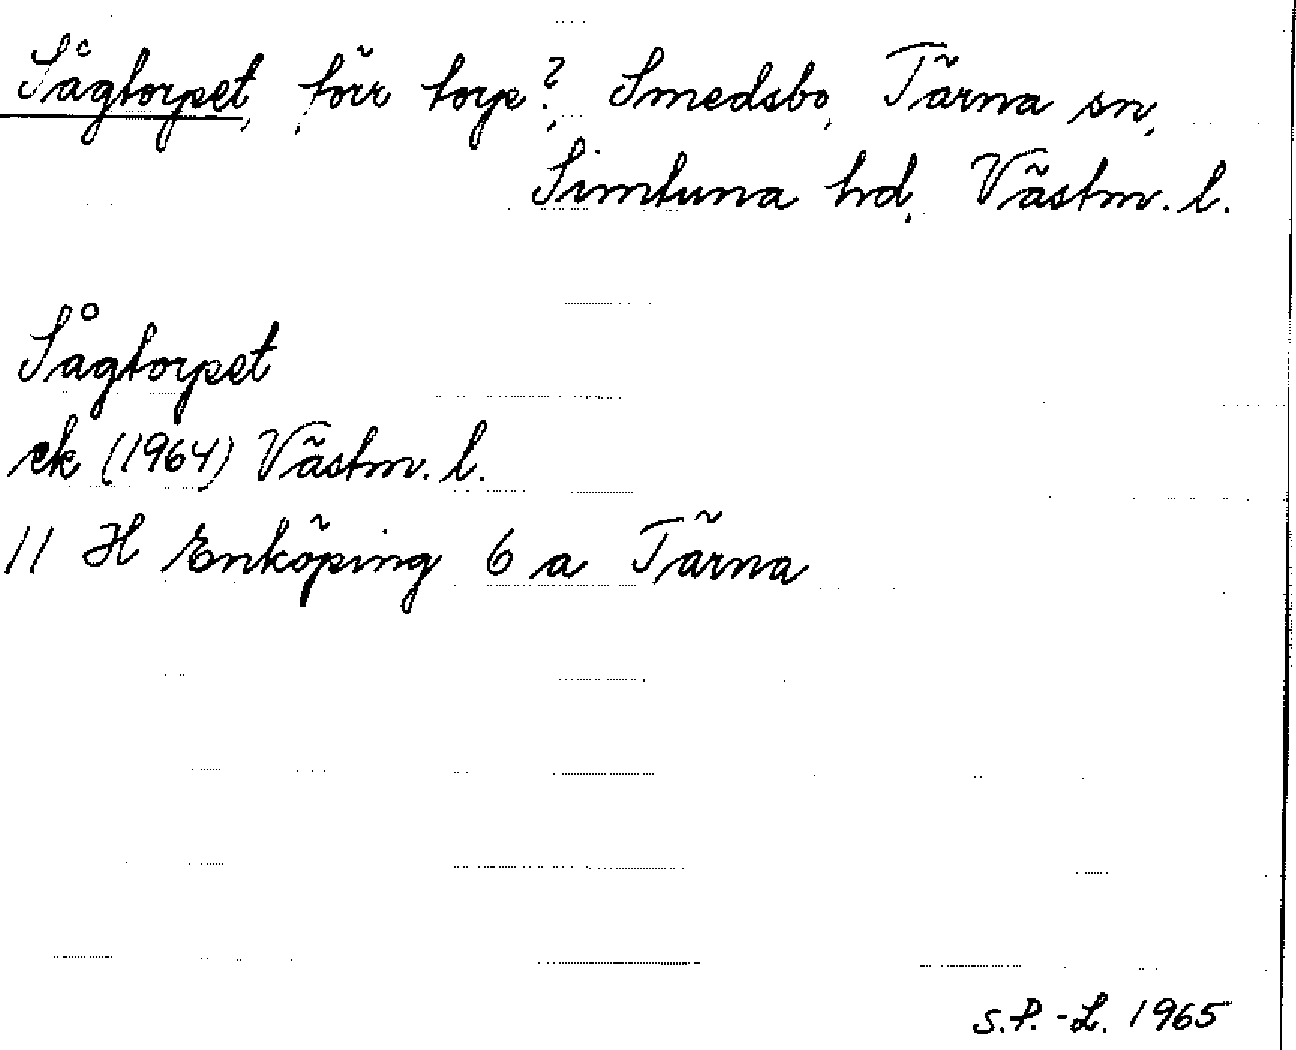 Sågtorpet, förr torp?, Smedsbo, Tärna sn,
Simtuna hd, Västm. l.
Sågtorpet
ek (1964) Västm. l.
11 H Enköping 6 a Tärna
S.P.-L. 1965